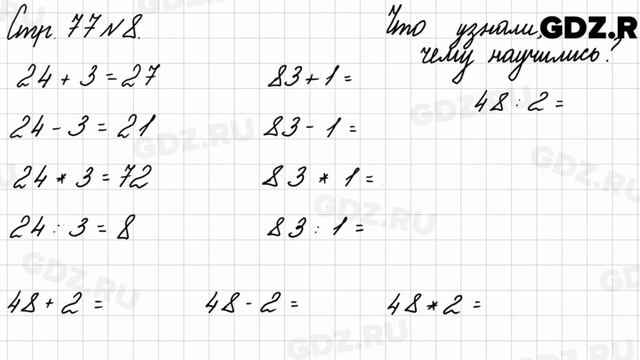 Стр. 77 № 8.
Что узнали,
чему научились?
GDZ.R
24 + 3 = 27
83 + 1 =
48 : 2 =
24 - 3 = 21
83 - 1 =
24 * 3 = 72
83 * 1 =
24 : 3 = 8
83 : 1 =
48 + 2 =
48 - 2 =
48 * 2 =
GDZ.RU
GDZ.RU
GDZ.RU
GDZ.RU
GDZ.RU